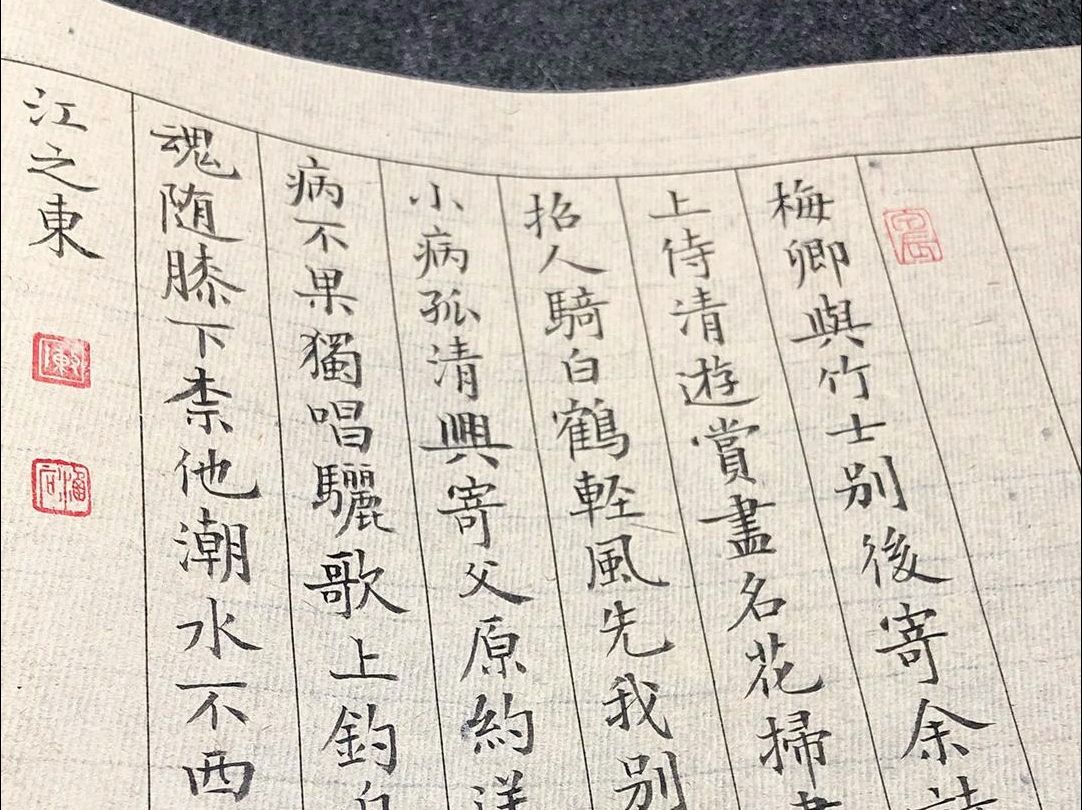 梅卿與竹士别後寄余詩
上侍清遊賞盡名花掃
招人騎白鶴輕風先我别
小病孤清興寄父原約
病不果獨唱驪歌上釣
魂随膝下柰他潮水不西
江之東